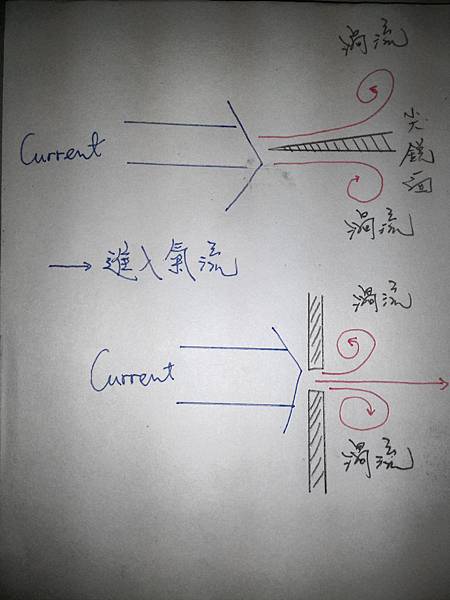 渦流
Current
尖銳面
渦流
→ 進入氣流
渦流
Current
渦流